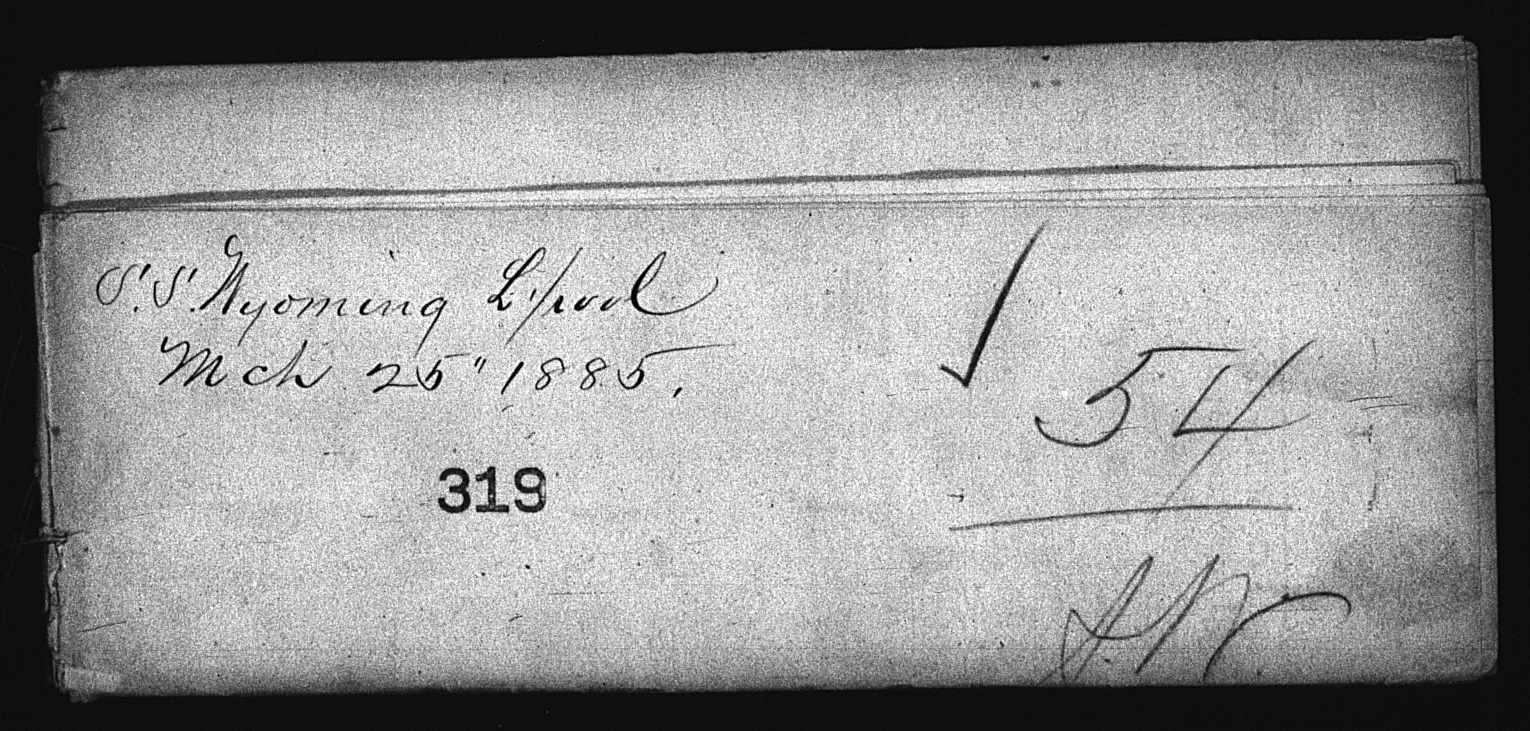 S.S. Wyoming L'pool
Mch 25" 1885.
319
54